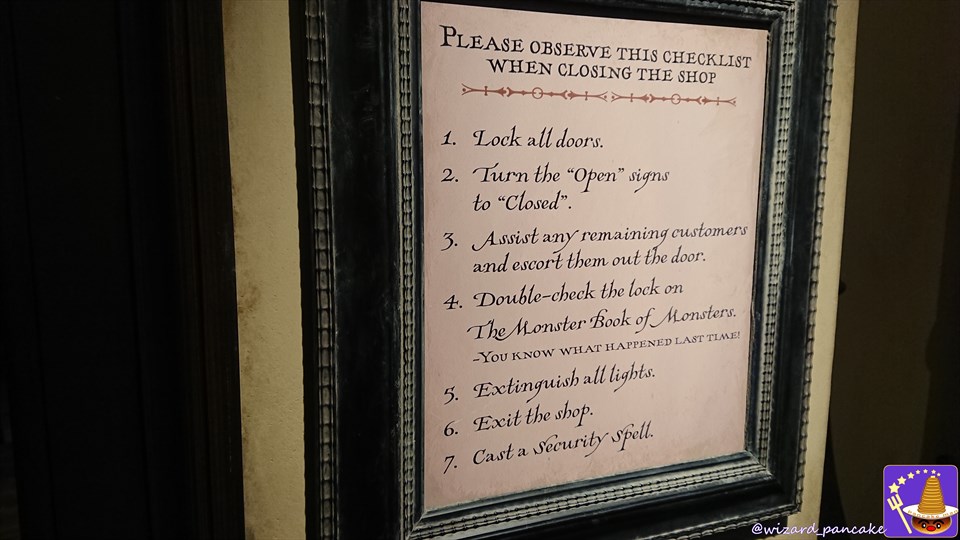 PLEASE OBSERVE THIS CHECKLIST
WHEN CLOSING THE SHOP
1. Lock all doors.
2. Turn the “Open” signs
to “Closed”.
3. Assist any remaining customers
and escort them out the door.
4. Double-check the lock on
The Monster Book of Monsters.
-YOU KNOW WHAT HAPPENED LAST TIME!
5. Extinguish all lights.
6. Exit the shop.
7. Cast a Security Spell.
@wizard_pancake